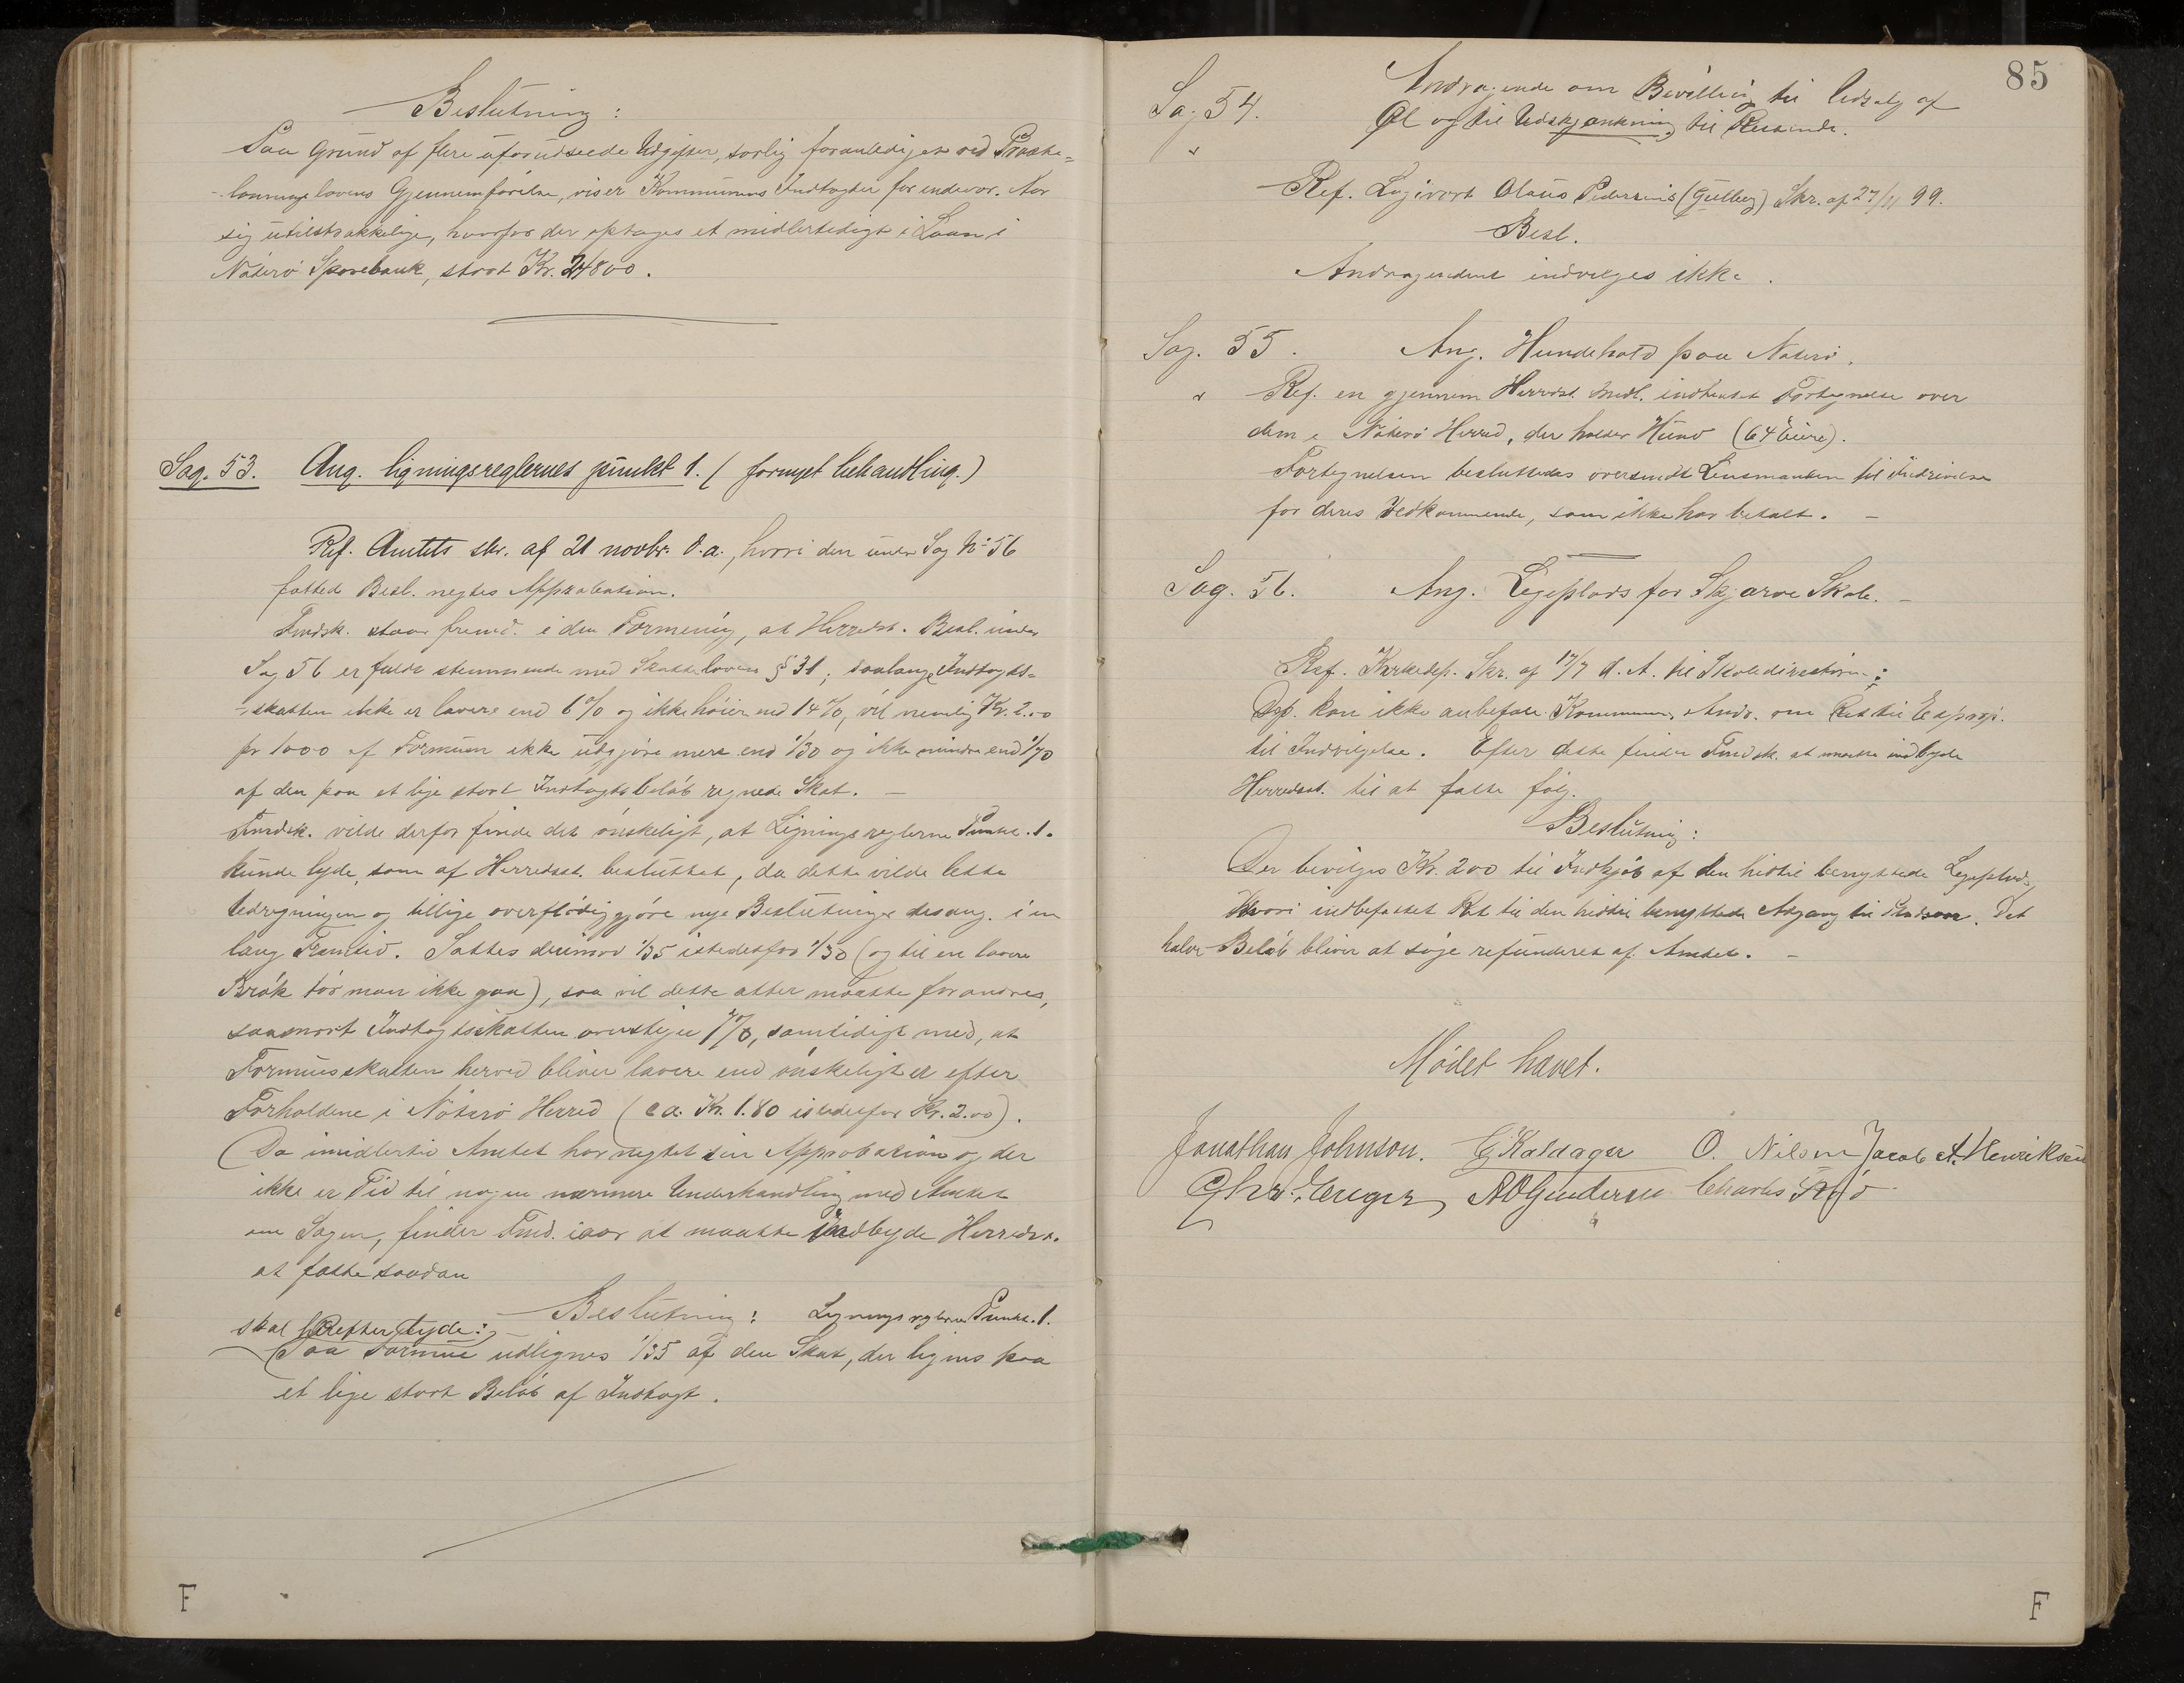 Beslutning:
Paa Grund af flere uforudseede Udgifter, særlig foranlediget ved Præste=
lønningslovens Gjennemførelse, viser Kommunens Indtægter for indevær. Aar
sig utilstrækkelige, hvorfor der optages et midlertidigt Laan i
Nøterø Sparebank, stort Kr. 24800.
Sag. 53. Ang. ligningsreglernes punkt 1. (fornyet behandling.)
Ref. Amtets skr. af 21 novbr. d.a., hvori den under Sag No 56
fattede Besl. negtes Approbation.
Fmdsk. staar fremd. i den Formening, at Herredst. Besl. under
Sag 56 er fuldt stemmende med Skattelovens § 31; saalænge Indtægts=
skatten ikke er lavere end 6% og ikke høiere end 14%, vil nemlig Kr. 2.00
pr 1000 af Formuen ikke udgjøre mere end 1/30 og ikke mindre end 1/70
af den paa et lige stort Indtægtsbeløb regnede Skat. —
Fmdsk. vilde derfor finde det ønskeligt, at Ligningsreglerne Punkt. 1.
kunde lyde, som af Herredsst. besluttet, da dette vilde lette
Udregningen og tillige overflødiggjøre nye Beslutninger desang. i en
lang Fremtid. Sættes derimod 1/35 istedetfor 1/30 (og til en lavere
Brøk tør man ikke gaa), saa vil dette atter maatte forandres,
saasnart Indtægtsskatten overstiger 7%, samtidigt med, at
Formuesskatten herved bliver lavere end ønskeligt er efter
Forholdene i Nøterø Herred (ca. Kr. 1.80 istedetfor Kr. 2.00).
(Da imidlertid Amtet har negtet sin Approbation og der
ikke er Tid til nogen nærmere Underhandling med Amtet
om Sagen, finder Fmd. iaar at maatte indbyde Herredsst.
at fatte saadan
Beslutning: Ligningsreglernes Punkt. 1.
skal herefter lyde:
Paa Formue udlignes 1/35 af den Skat, der lignes paa
et lige stort Beløb af Indtægt.
F
85
Sag 54. Andragende om Bevilling til Udsalg af
Øl og til Udskjænkning til Reisende.
Ref. Logivert Olaus Pedersens (Gulberg) Skr. af 27/11 99.
Besl.
Andragendet indvilges ikke.
Sag. 55. Ang. Hundehold paa Nøterø.
Ref. en gjennem Herredst. Medl. indhentet Fortegnelse over
dem i Nøterø Herred, der holder Hund (64 Eiere).
Fortegnelsen besluttedes oversendt Lensmanden til Inddrivelse
for deres Vedkommende, som ikke har betalt. —
Sag. 56. Ang. Legeplads for Skjærve Skole. —
Ref. Kirkedep. Skr. af 17/7 d. A. til Skoledirectøren:
Dep. kan ikke anbefale Kommunens Andr. om Ret til Exprop.
til Indvilgelse. Efter dette finder Fmdsk. at maatte indbyde
Herredsst. til at fatte følg.
Beslutning:
Der bevilges Kr. 200 til Indkjøb af den hidtil benyttede Legeplads,
Hvori indbefattet Ret til den hidtil benyttede Adgang til Pladsen. Det
halve Beløb bliver at søge refunderet af Amtet. —
Mødet hævet.
Jonathan Johnson. C Kaldager O. Nilsen Jacob A. Henriksen
Chr. A O Gundersen Charles
F